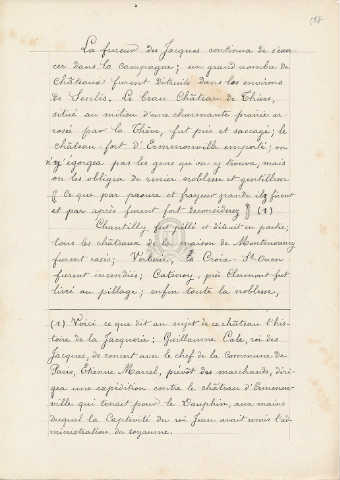 198
La fureur des Jacques continua de s'exer
cer dans la campagne ; un grand nombre de
Châteaux furent détruits dans les environs
de Senlis. Le beau Château de Thiers,
situé au milieu d'une charmante prairie ar
rosée par la Thève, fut pris et saccagé ; le
château fort d'Ermenonville emporté ; on
n'y égorgea pas les gens qu'on y trouva, mais
on les obligea de renier noblesse et gentillesse
" Ce que par paoure et frayeur grande ilz firent
et par après furent fort déconsiderez " (1)
Chantilly fut pillé et détruit en partie ;
tous les châteaux de la maison de Montmorency
furent rasés ; Verberie, la Croix-St-Ouen
furent incendiés ; Catenoy, près Clermont fut
livré au pillage ; enfin toute la noblesse,
(1) Voici ce que dit au sujet de ce château l'his-
toire de la Jacquerie : Guillaume Cale, roi des
Jacques, de concert avec le chef de la Commune de
Paris, Etienne Marcel, prévôt des marchands, diri-
gea une expédition contre le château d'Ermenon-
ville qui tenait pour le Dauphin, aux mains
duquel la Captivité du roi Jean avait remis l'ad-
ministration du royaume.